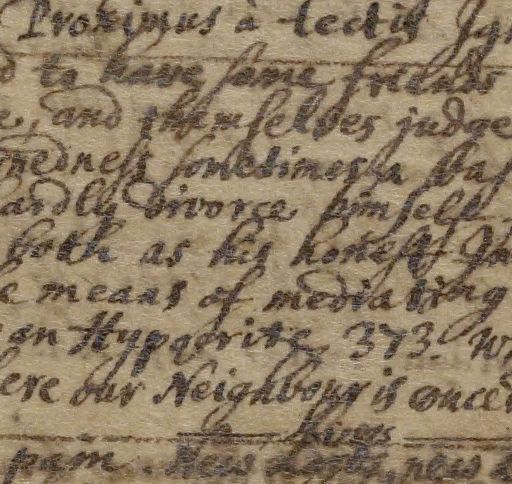 Proximus à tectis Ign
d to have some friends
e, and themselves judge
nedness sometimes a bas
ardly divorce himself
both as his honest Ja
e means of mediating
on Hypocrite 373. W
ere our Neighbour is once
kings
pam.